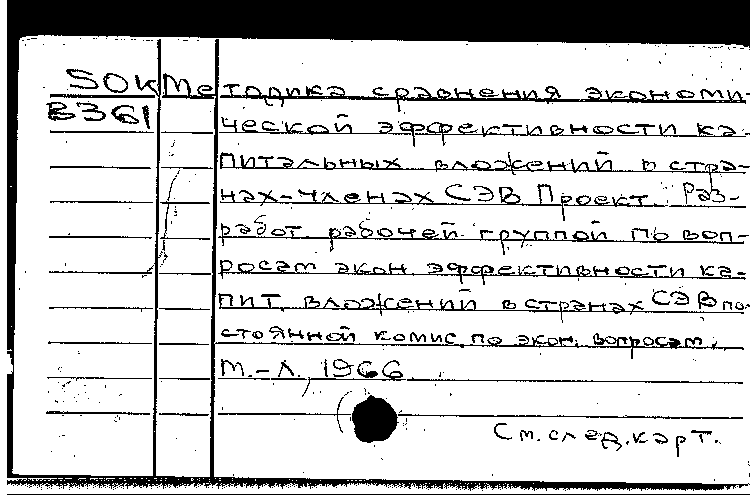 50К Методика сравнения экономи-
В361 ческой эффективности ка-
питальных вложений в стра-
нах-членах СЭВ Проект. Раз-
работ. рабочей группой по воп-
росам экон. эффективности ка-
пит. вложений в странах СЭВ по-
стоянной комис. по экон. вопросам.
М.-Л., 1966
См. след. карт.